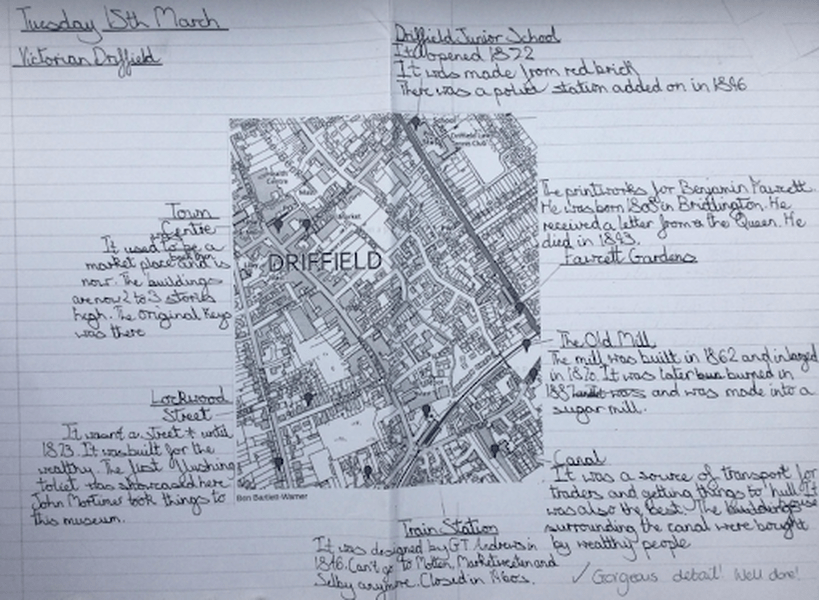 Tuesday 15th March
Victorian Driffield
Driffield Junior School
It opened 1872
It was made from red brick
There was a police station added on in 1896
Town
Centre
It used to be a
market place back then and is
now. The buildings
are now 2 to 3 stories
high. The original Keys
was there
Lockwood
Street
It wasnt a street until
1873. It was built for the
wealthy. The first flushing
toilet was showcased here
John Mortimer took things to
this museum.
School
Driffield Lawn
Tennis Club
Health
Centre
Market
DRIFFIELD
Ben Bartlett-Warner
The printworks for Benjamin Fawcett.
He was born 1808 in Bridlington. He
received a letter from the Queen. He
died in 1893.
Fawcett Gardens
The Old Mill
The mill was built in 1862 and inlarged
in It was later burned in
and was made into a
sugar mill.
Canal
It was a source of transport for
traders and getting things to hull. It
was also the best. The house
surrounding the canal were bought
by wealthy people
Train Station
It was designed by GT Andrews in
1846. Can't go to Molton, Marketweeten and
Selby anymore. Closed in 1960s.
✓ Gorgeous detail! Well done!